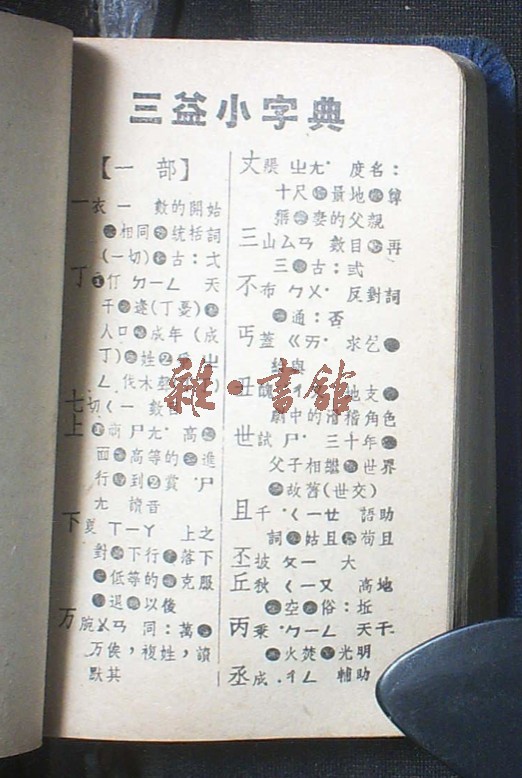 三益小字典
【一 部】
一衣 一 數的開始
相同 統括詞
(一切) 古：弌
丁 仃 ㄉㄧㄥ 天
干 逢(丁憂)
人口 成年(成
丁) 姓 ㄓ
ㄥ 伐木
七切 ㄑ一
上 ㄕㄤ 高
面 高等的 進
行 到 賞 ㄕ
ㄤ 讀音
下夏 ㄒㄧㄚ 上之
對 下行 落下
低等的 克服
退 以後
万腕ㄨㄢ 同：萬
万俟，複姓，讀
默其
丈賬 ㄓㄤ 度名：
十尺 量地 尊
張 妻的父親
三山ㄙㄢ 數目 再
三 古：弎
不布 ㄅㄨ 反對詞
通：否
丐蓋 ㄍㄞ 求乞
丑 地支
劇中的滑稽角色
世試 ㄕ 三十年
父子相繼 世界
故舊(世交)
且 ㄑㄧㄝ 語助
詞 姑且 苟且
丕坡 ㄆㄧ 大
丘秋 ㄑㄧㄡ 高地
空 俗：坵
丙 ㄅㄧㄥ 天干
火焚 光明
丞成 ㄔㄥ 輔助
雜·書館